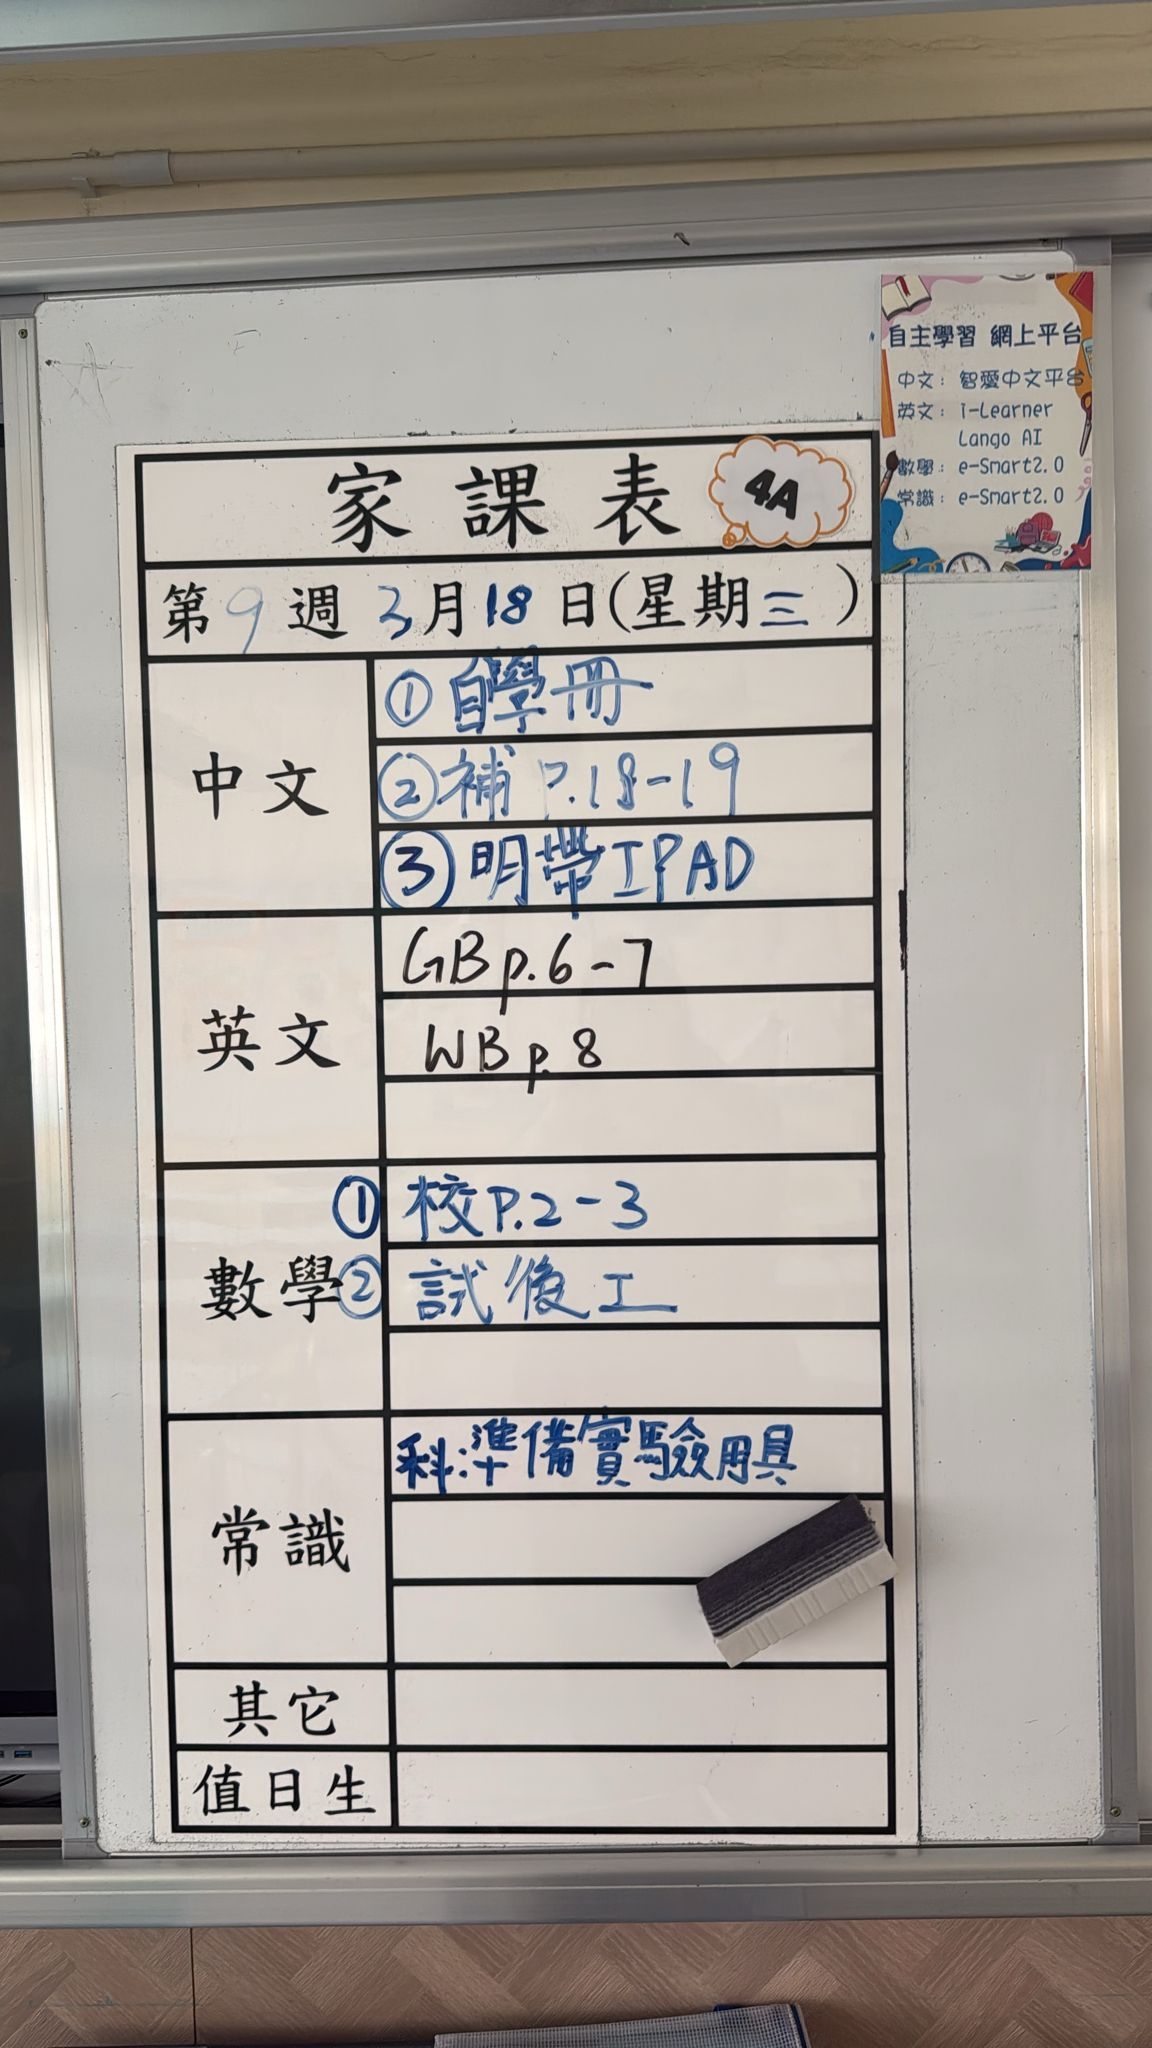 自主學習 網上平台
中文：智愛中文平台
英文：i-Learner
Lango AI
數學：e-Smart2.0
常識：e-Smart2.0
家課表 4A
第9週 3月18日(星期三)
中文
①自學冊
②補 P.18-19
③明帶IPAD
英文
GB p.6-7
WB p.8
數學
①校P.2-3
②試後工
常識
科:準備實驗用具
其它
值日生